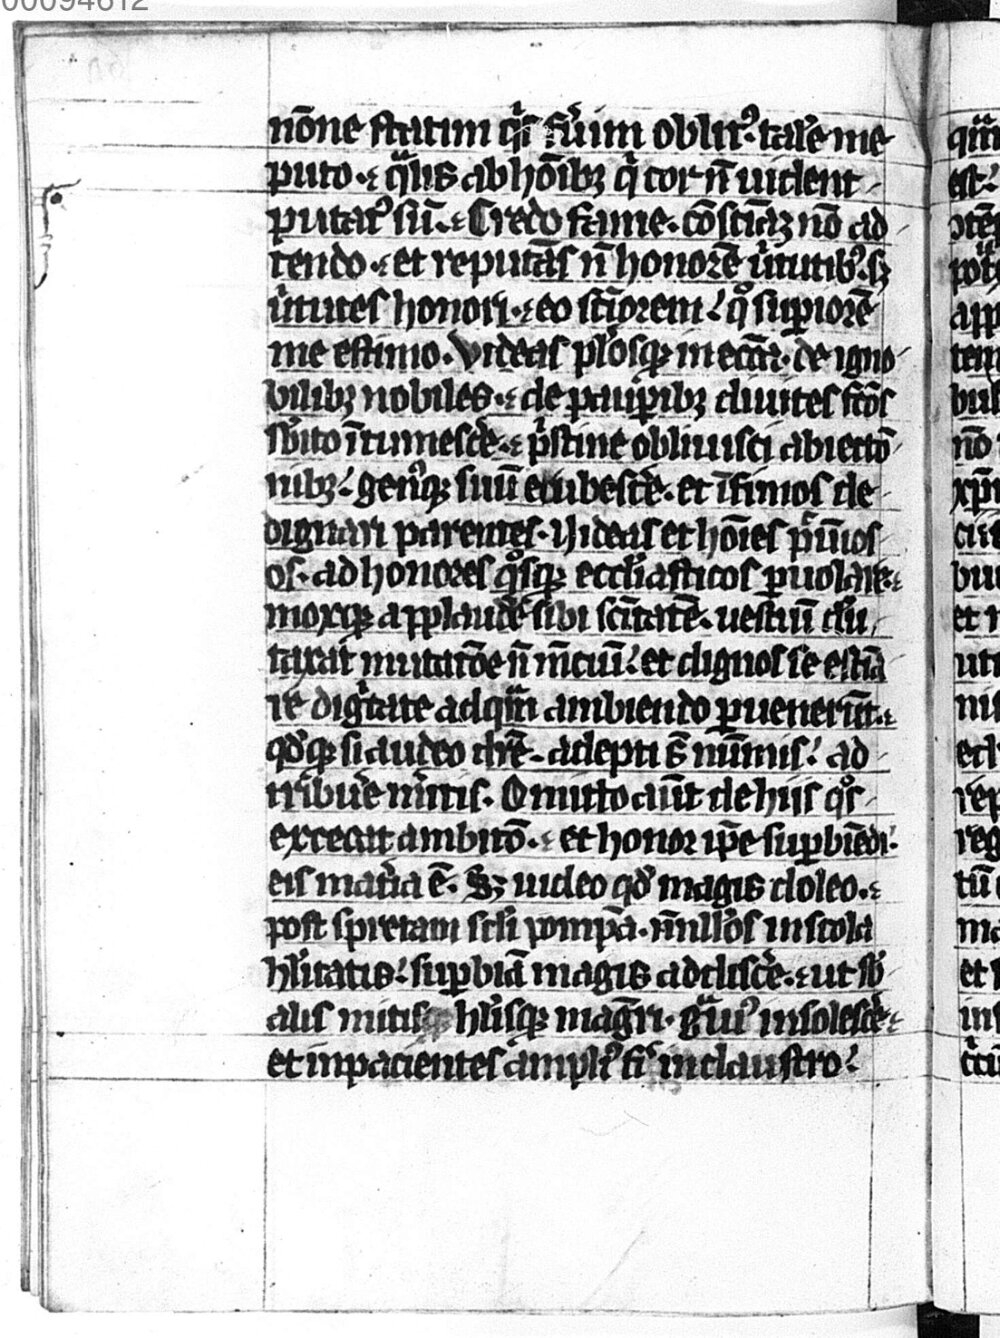 00094612
nōne statim qͥs fu̾im oblitꝰ· tale̅ me
puto· ⁊ qͣlis ab ho̅ibꝫ qͥ cor n̅ uident
putatꝰ su̅· ⁊ Credo fame· co̅scia̅ꝫ no̅ ad
tendo· ⁊ et reputa̅s n̅ honore̅ u̾tutibꝰ· sꝫ
u̾tutes honori· ⁊ eo sc̅iorem! qͦ sup̱iore̅
me estimo· Videas pl̾osqꝫ in ecc̅a· de igno
bilibꝫ nobiles· ⁊ de paup̱ibꝫ diuites fc̅os
sb̾ito i̅tumesce̾· ⁊ pͥstine obliuisci abiectio̅
nibꝫ! genꝰqꝫ suu̅ erubesce̾· et i̅fimos de
dignari parentes· Uideas et ho̅ies pͥmios
os· ad honores qͦsqꝫ eccl̅iasticos p̱uolare· ⁊
moxqꝫ applaude̾ sibi sc̅itate̅· uestiu̅ du̅
taxat mutatōe n̅ m̅ciu̅! et dignos se esti̅a
re dig̅tate ad qͣm ambiendo p̱uenerūt· ⁊
qd̾qꝫ si audeo dr̅e· adepti s̅ nu̅mis! ad
tribue̾ m̾itis· Omitto aut̅ de hiis qͦs
excecat ambitio̅· ⁊ et honor ip̅e sup̱bie̅di·
eis mat̾ia e̅· Sꝫ uideo qd̾ magis doleo· ⁊
post spretam scl̾i pompa̅· n̅nll̾os in scola
hl̾itatis! sup̱bia̅ magis addisce̾· ⁊ ut sb̾
alis mitis hl̾isqꝫ mag̅ri· gͣuiꝰ insolesce̾t
et inpacientes ampliꝰ fi̾ in claustro!